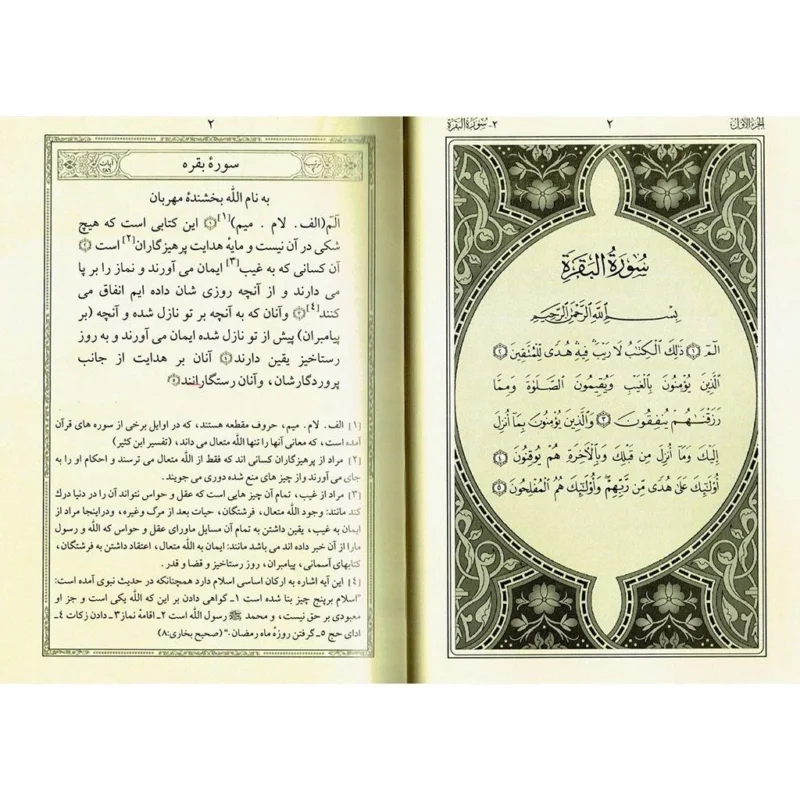 الجزء الأول
٢
٢- سورة البقرة
سُورَةُ الْبَقَرَةِ
بِسْمِ اللَّهِ الرَّحْمَٰنِ الرَّحِيمِ
الٓمٓ ١ ذَٰلِكَ الْكِتَٰبُ لَا رَيْبَ ۛ فِيهِ ۛ هُدًى لِّلْمُتَّقِينَ ٢
الَّذِينَ يُؤْمِنُونَ بِالْغَيْبِ وَيُقِيمُونَ الصَّلَوٰةَ وَمِمَّا
رَزَقْنَٰهُمْ يُنفِقُونَ ٣ وَالَّذِينَ يُؤْمِنُونَ بِمَآ أُنزِلَ
إِلَيْكَ وَمَآ أُنزِلَ مِن قَبْلِكَ وَبِالْأَخِرَةِ هُمْ يُوقِنُونَ ٤
أُوْلَٰٓئِكَ عَلَىٰ هُدًى مِّن رَّبِّهِمْ ۖ وَأُوْلَٰٓئِكَ هُمُ الْمُفْلِحُونَ ٥
٢
سورۀ بقره
آیات ٢٨٦
به نام اللّه بخشندۀ مهربان
الٓمٓ(الف. لام . میم)[١] ١ این کتابی است که هیچ
شکی در آن نیست و مایۀ هدایت پرهیزگاران[٢] است ٢
آن کسانی که به غیب[٣] ایمان می آورند و نماز را بر پا
می دارند و از آنچه روزی شان داده ایم انفاق می
کنند[٤] ٣ وآنان که به آنچه بر تو نازل شده و آنچه (بر
پیامبران) پیش از تو نازل شده ایمان می آورند و به روز
رستاخیز یقین دارند ٤ آنان بر هدایت از جانب
پروردگارشان، وآنان رستگارانند ٥
[١] الف. لام. میم، حروف مقطعه هستند، که در اوایل برخی از سوره های قرآن
آمده است، که معانی آنها را تنها اللّه متعال می داند، (تفسیر ابن کثیر)
[٢] مراد از پرهیزگاران کسانی اند که فقط از اللّه متعال می ترسند و احکام او را به
جای می آورند و از چیز های منع شده دوری می جویند.
[٣] مراد از غیب، تمام آن چیز هایی است که عقل و حواس نتواند آن را در دنیا درك
کند مانند: وجود اللّه متعال، فرشتگان، حیات بعد از مرگ وغیره، ودراینجا مراد از
ایمان به غیب، یقین داشتن به تمام آن مسایل ماورای عقل و حواس که اللّه و رسول
مارا از آن خبر داده اند می باشد مانند: ایمان به اللّه متعال، اعتقاد داشتن به فرشتگان،
کتابهای آسمانی، پیامبران، روز رستاخیز و قضا و قدر.
[٤] این آیه اشاره به ارکان اساسی اسلام دارد همچنانکه در حدیث نبوی آمده است:
"اسلام برپنج چیز بنا شده است ١ـ گواهی دادن بر این که اللّه یکی است و جز او
معبودی بر حق نیست، و محمد ﷺ رسول اللّه است ٢ـ اقامۀ نماز ٣ـ دادن زکات ٤ـ
ادای حج ٥ـ گرفتن روزۀ ماه رمضان."(صحیح بخاری:٨)